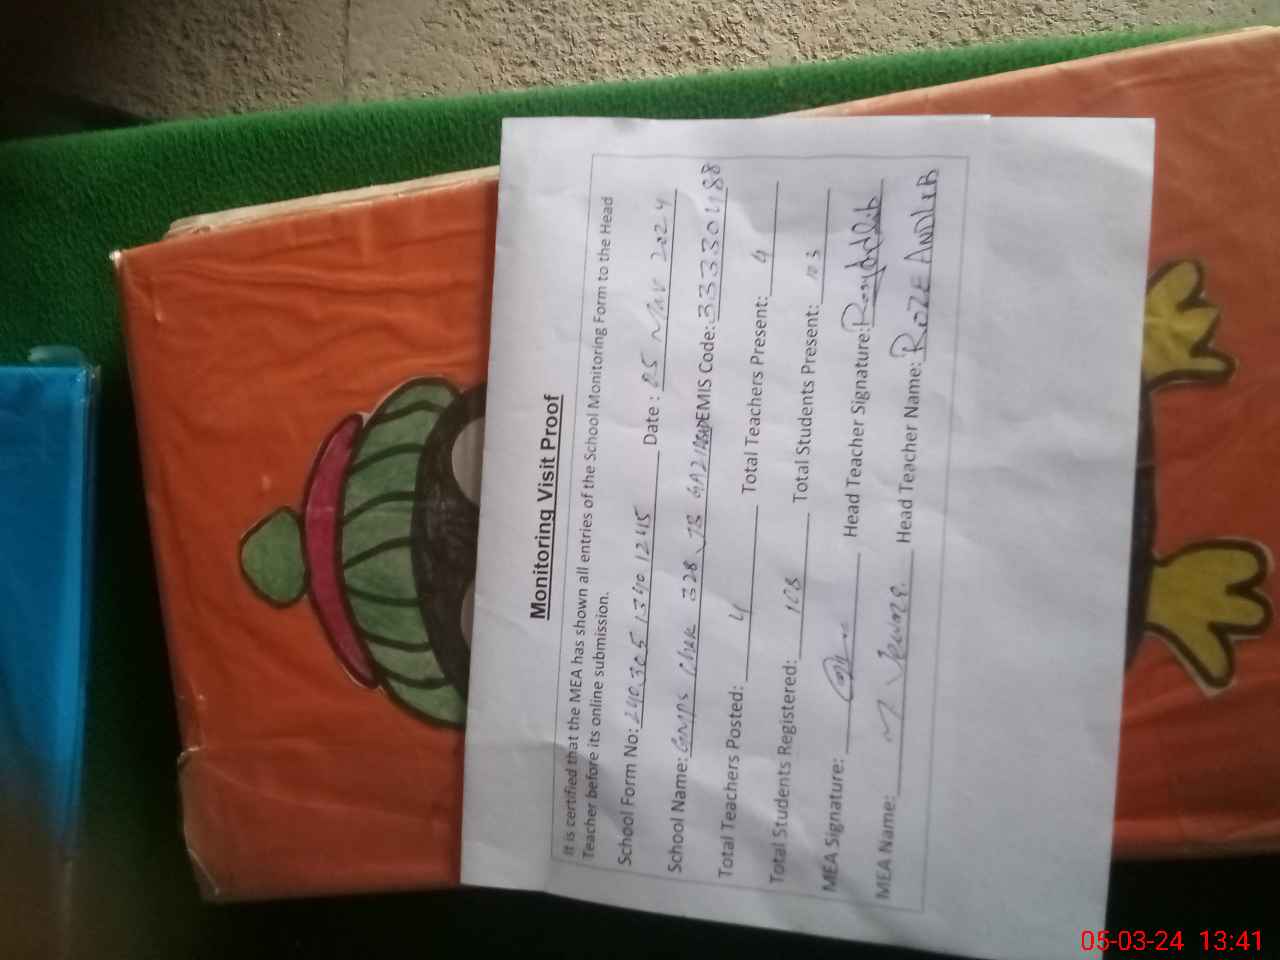 Monitoring Visit Proof
It is certified that the MEA has shown all entries of the School Monitoring Form to the Head
Teacher before its online submission.
School Form No: 240305134012415 Date: 05 Mar 2024
School Name: GMPS Chak 328 JB EMIS Code: 33330488
Total Teachers Posted: 4 Total Teachers Present: 4
Total Students Registered: 108 Total Students Present: 103
MEA Signature: Head Teacher Signature:
MEA Name: M Head Teacher Name: ROZE ANDLIB
05-03-24 13:41